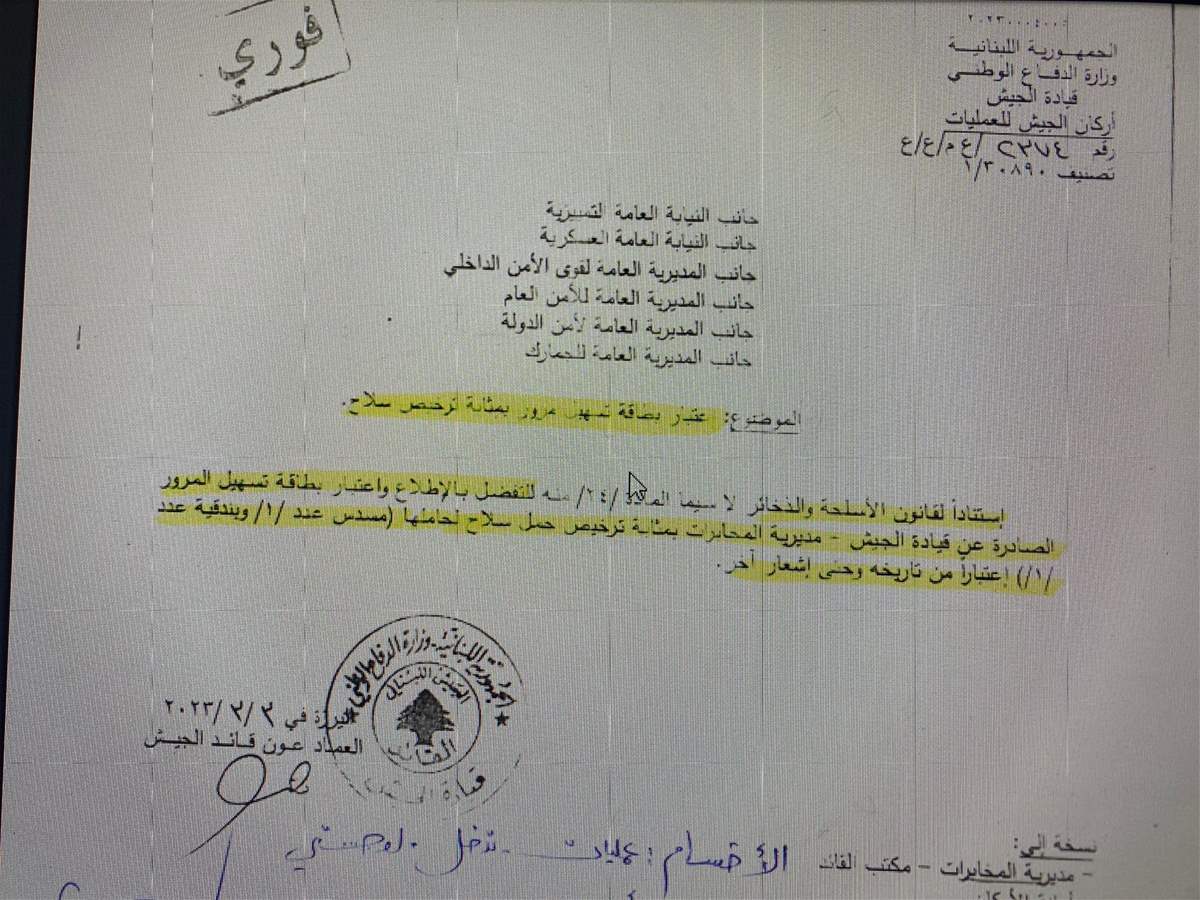 فوري
الجمهورية اللبنانية
وزارة الدفاع الوطني
قيادة الجيش
أركان الجيش للعمليات
رقم ٢٣٧٤ /ع م/ع/ع
تصنيف ١/٣٠٨٩٠
جانب النيابة العامة التمييزية
جانب النيابة العامة العسكرية
جانب المديرية العامة لقوى الأمن الداخلي
جانب المديرية العامة للأمن العام
جانب المديرية العامة لأمن الدولة
جانب المديرية العامة للجمارك
الموضوع: اعتبار بطاقة تسهيل مرور بمثابة ترخيص سلاح.
إستناداً لقانون الأسلحة والذخائر لا سيما المادة /٢٤/ منه للتفضل بالإطلاع واعتبار بطاقة تسهيل المرور
الصادرة عن قيادة الجيش - مديرية المخابرات بمثابة ترخيص حمل سلاح لحاملها (مسدس عدد /١/ وبندقية عدد
/١/) إعتباراً من تاريخه وحتى إشعار آخر.
الجمهورية اللبنانية - وزارة الدفاع الوطني
الجيش اللبناني
القائد
قيادة الجيش
اليرزة في ٢٠٢٣/٣/٣
العماد عون قائد الجيش
نسخة إلى:
- مديرية المخابرات - مكتب القائد
الأقسام: عمليات - تدخل - لوجستي